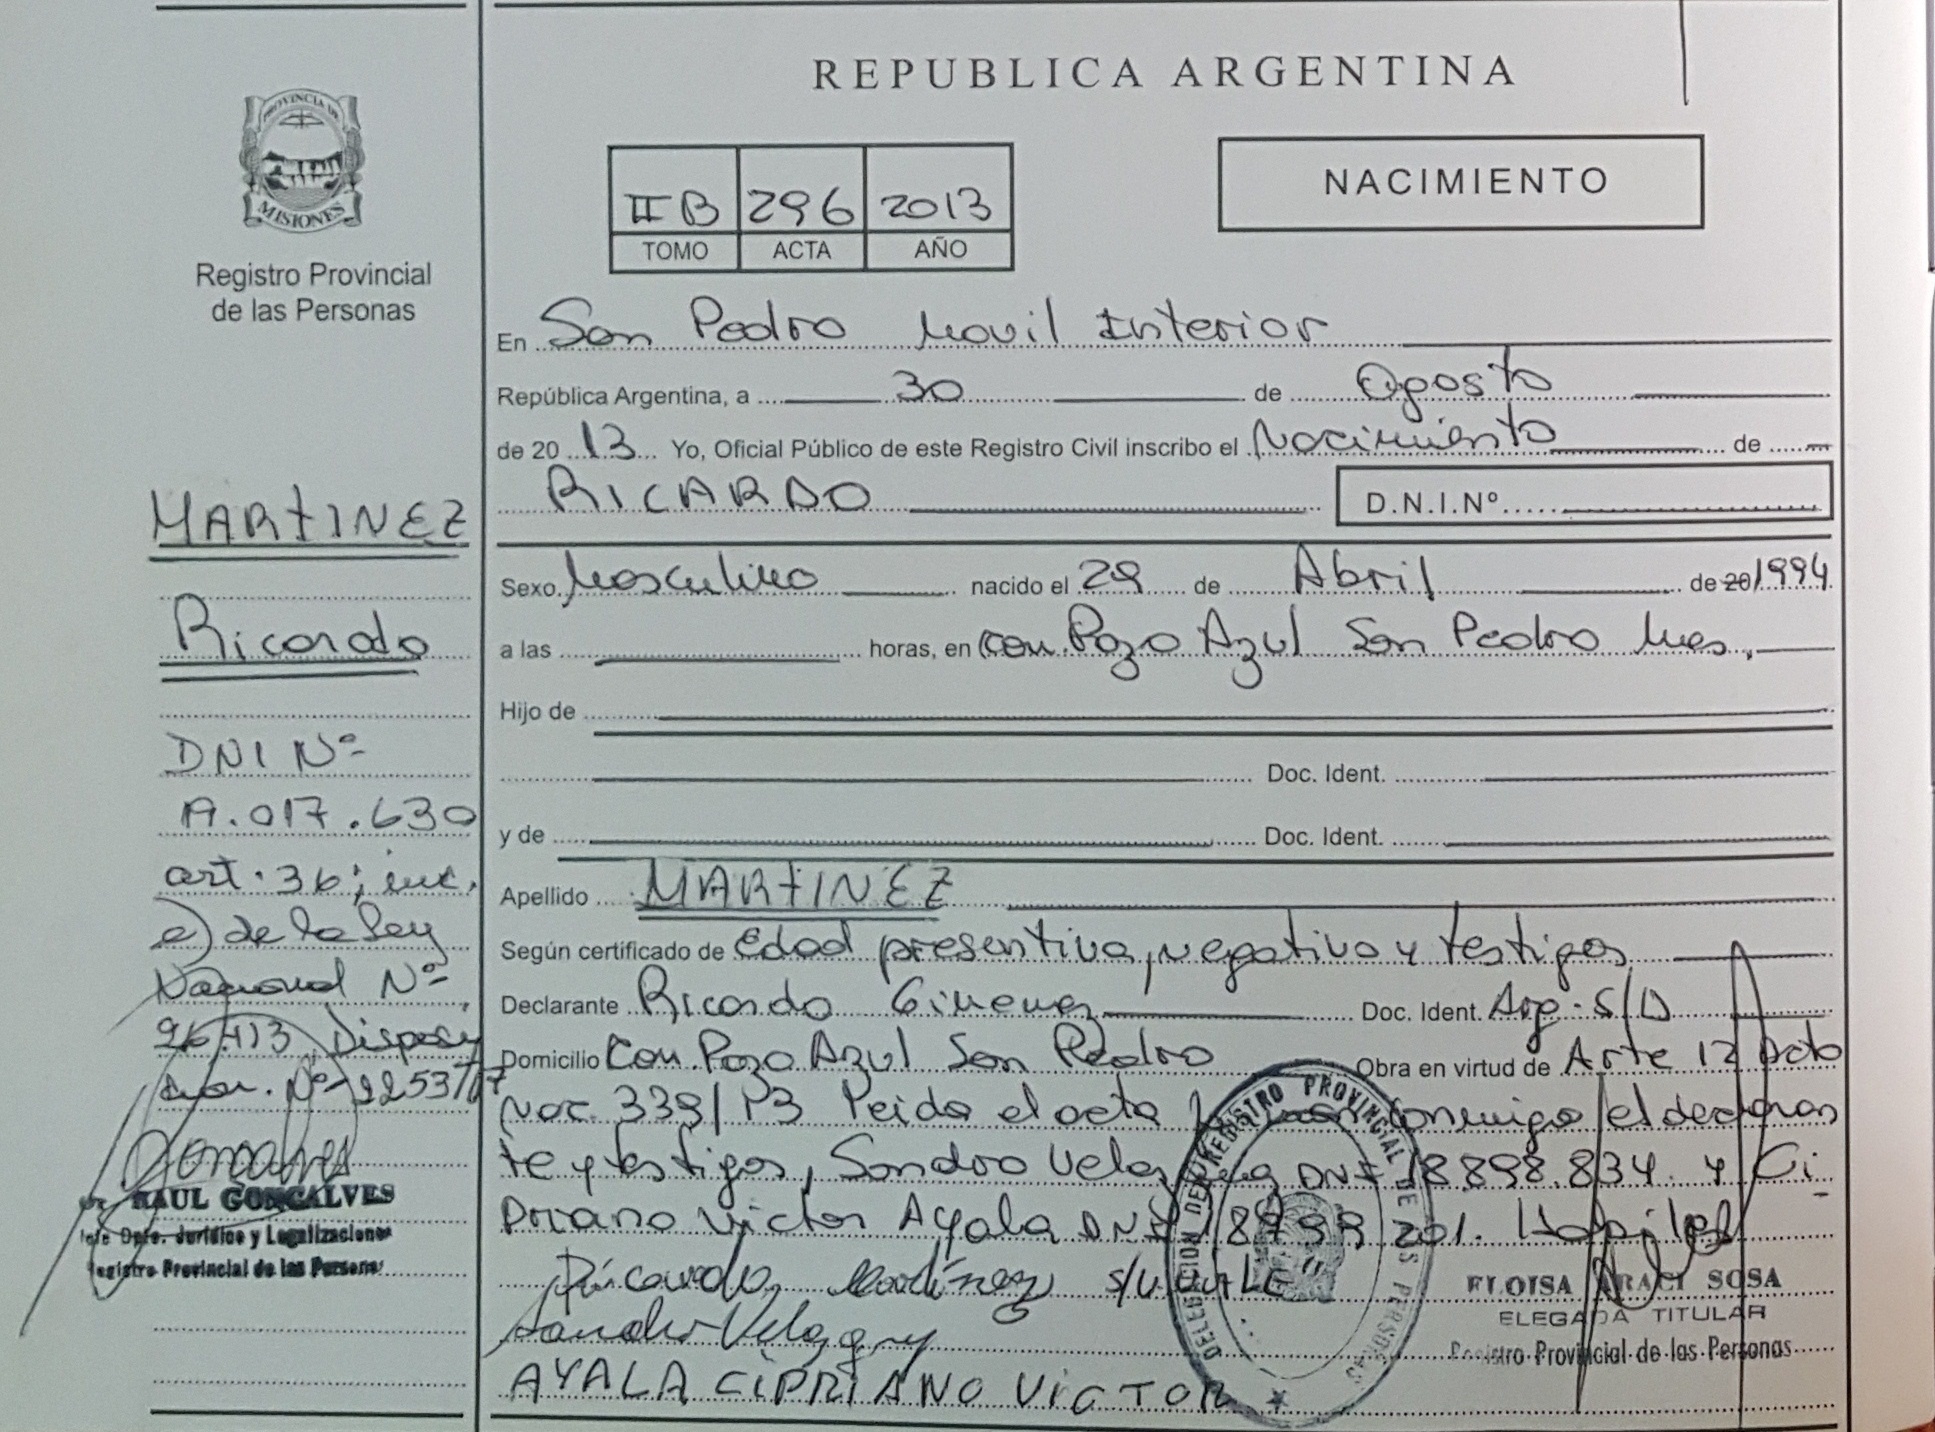 REPUBLICA ARGENTINA
PROVINCIA DE
MISIONES
Registro Provincial
de las Personas
II B 296 2013
TOMO ACTA AÑO
NACIMIENTO
En San Pedro Movil Interior
República Argentina, a 30 de Agosto
de 20 13 Yo, Oficial Público de este Registro Civil inscribo el Nacimiento de
RICARDO D.N.I.Nº
Sexo Masculino nacido el 29 de Abril de 20 1994
a las horas, en Con. Pozo Azul San Pedro Mnes.
Hijo de
Doc. Ident.
y de Doc. Ident.
Apellido MARTINEZ
Según certificado de Edad presentiva, negativo y testigos
Declarante Ricardo Gimenez Doc. Ident. Arg. S/D
Domicilio Con. Pozo Azul San Pedro Obra en virtud de Arte 12 Acto
Nac. 339/P3 Leida el acta conmigo el declaran
te y testigos, Sandro Velazquez DNI 18.898.834. y Ci
priano Victor Ayala DNI 201.
Ricardo Martinez S/U VALE
Sandro Velazquez
AYALA CIPRIANO VICTOR
DELEGACION DEL REGISTRO PROVINCIAL DE LAS PERSONAS
ELOISA ARACI SOSA
ELEGADA TITULAR
Registro Provincial de las Personas
MARTINEZ
Ricardo
DNI Nº
A.017.630
art. 36; inc.
a) de la Ley
Nacional Nº
26.413 Disposi
cion. Nº 2253/17
RAUL GONCALVES
Jefe Dpto. Jurídico y Legalizaciones
Registro Provincial de las Personas